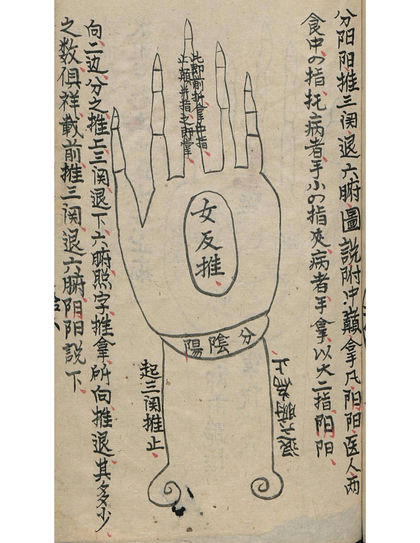 分阴阳推三関退六腑圖說附中巔拿凡阴阳医人两
食中の指托病者手小の指夾病者手拿以大二指阴阳
女反推
分陰陽
退六腑為止
起三関推止
向二边分之推上三関退下六腑照字推拿所向推退其多少
之数俱祥載前推三関退六腑阴阳說下